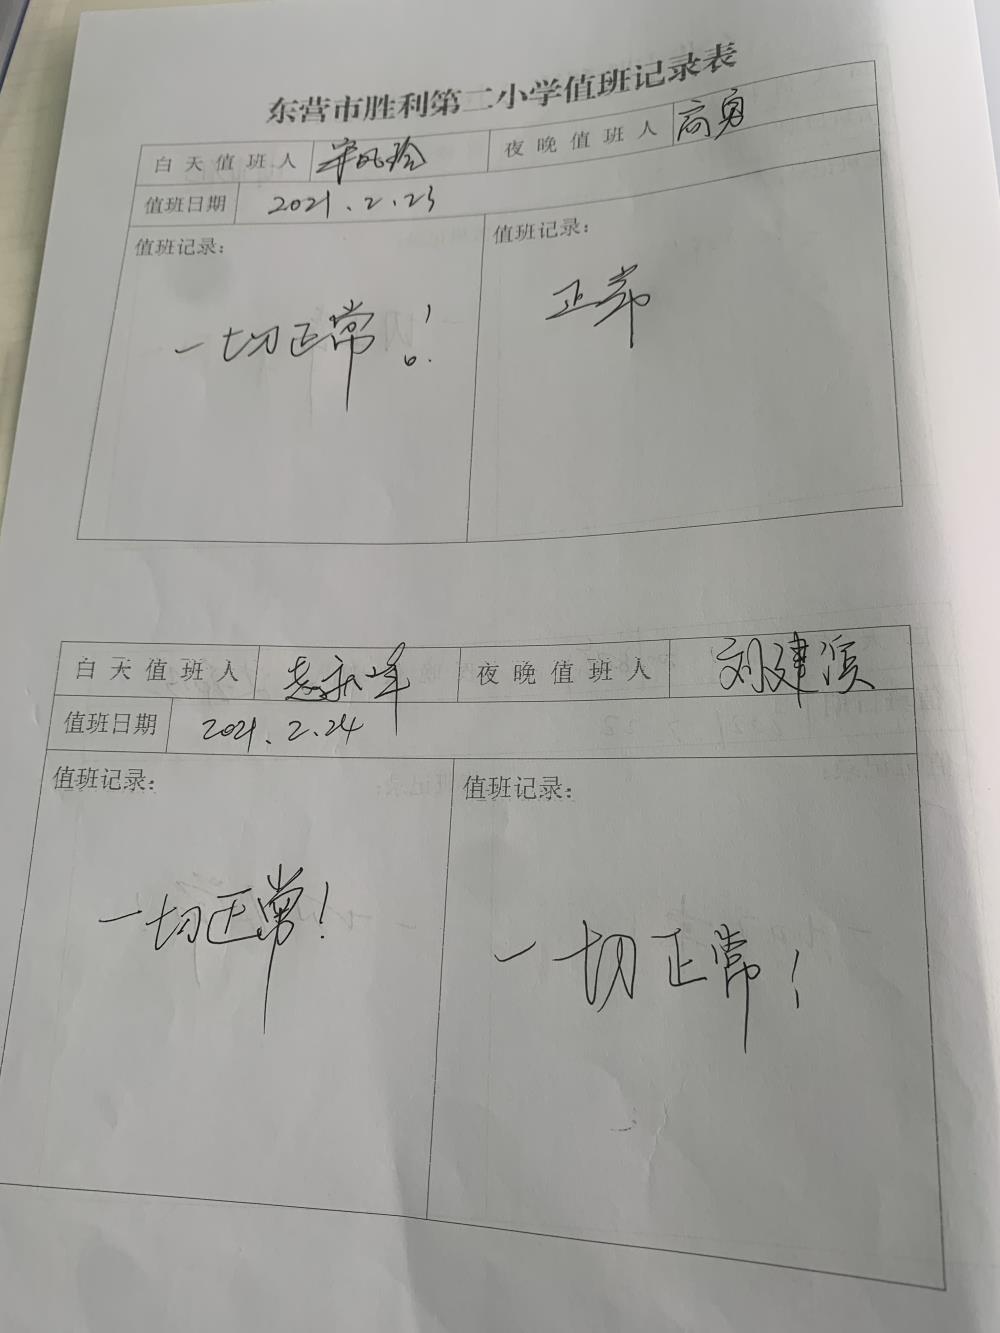 东营市胜利第二小学值班记录表
白天值班人 宋凤玲 夜晚值班人 高勇
值班日期 2021.2.23
值班记录: 值班记录:
一切正常! 正常
白天值班人 夜晚值班人 刘建滨
值班日期 2021.2.24
值班记录: 值班记录:
一切正常! 一切正常!